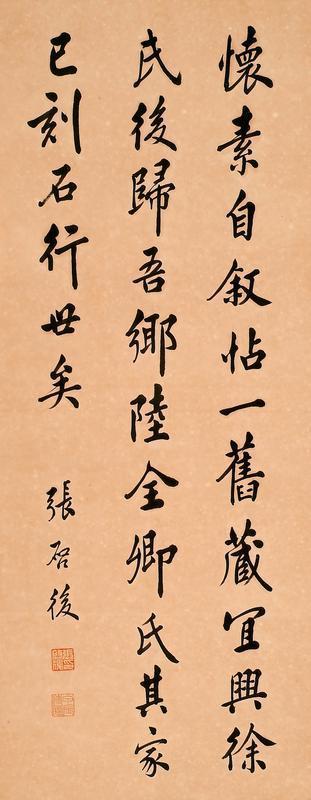 懷素自叙帖一舊藏宜興徐
氏後歸吾鄉陸全卿氏其家
已刻石行世矣
張啓後